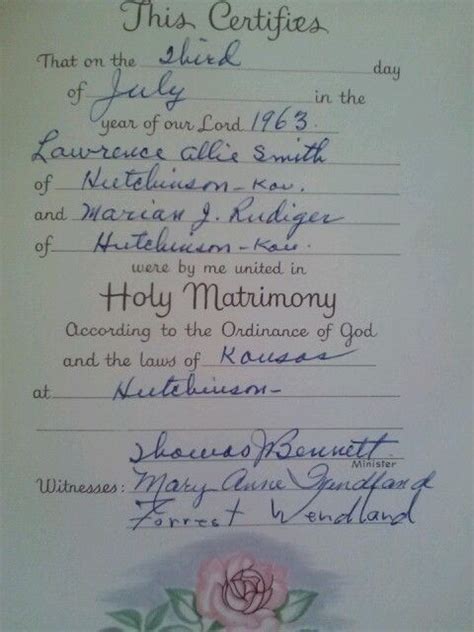 This Certifies
That on the Third day
of July in the
year of our Lord 1963.
Lawrence Allie Smith
of Hutchinson - Kan.
and Marian J. Rudiger
of Hutchinson - Kan.
were by me united in
Holy Matrimony
According to the Ordinance of God
and the laws of Kansas
at Hutchinson -
Thomas J Bennett
Minister
Witnesses: Mary Anne Wendland
Forrest Wendland